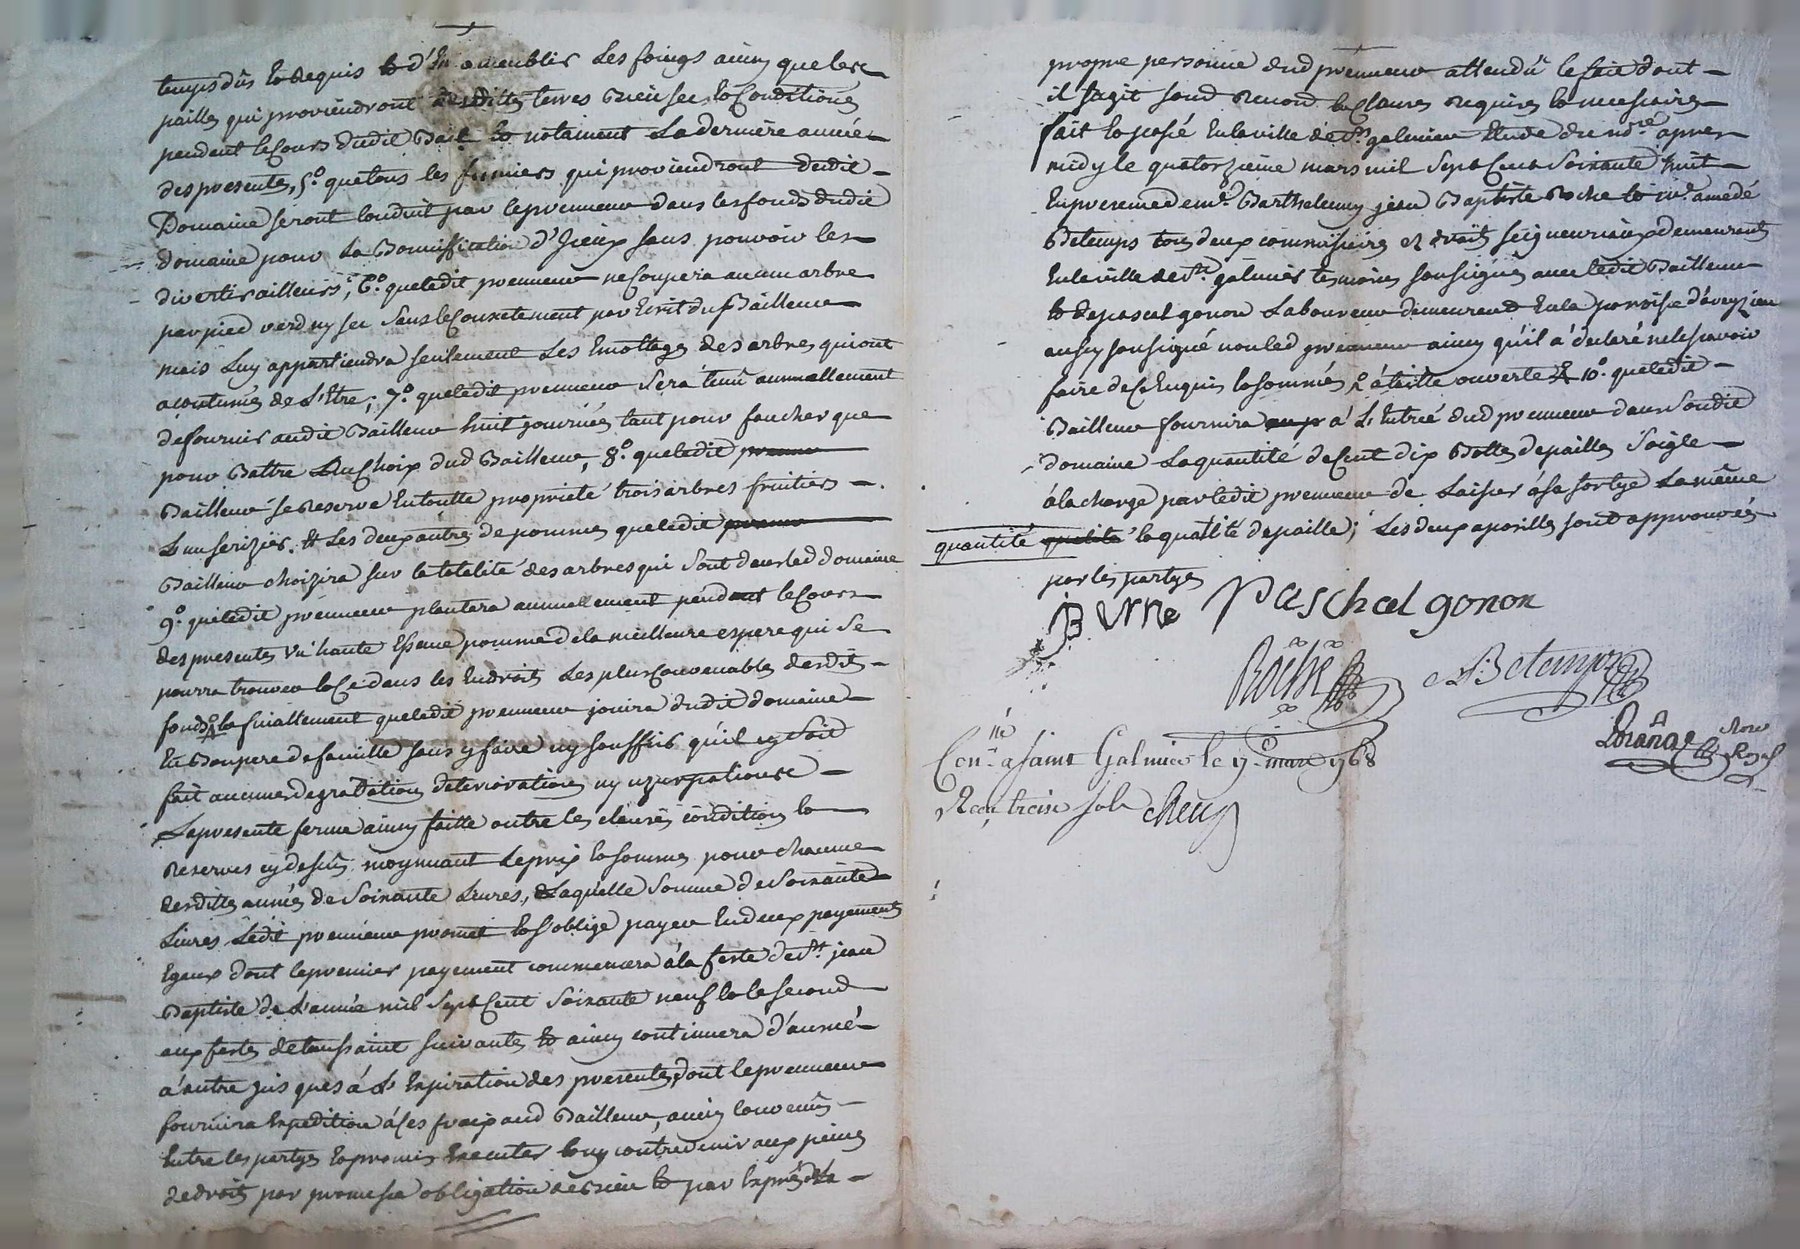 temps dûs et Requis et d'En ameublir Les foings ainsy que les
pailles qui proviendront desdittes terres
pendent le Cours dudit Bail et notament La derniere année
des presentes, 5.º que tous les fumiers qui proviendront dudit
Domaine seront Conduit par le prenneur dans les fonds dudit
domaine pour La Bonniffication d'Iceux sans pouvoir les
divertir ailleurs; 6.º que ledit prenneur ne Coupera aucun arbre
par pied verd ny sec sans le Consetement par Ecrit du Bailleur
mais Luy appartiendra seulement Les Emottages des arbres qui ont
acoutumés de L'Etre; 7.º que ledit prenneur sera tenû annuallement
de fournir audit Bailleur huit journées tant pour faucher que
pour Battre Au Choix dud Bailleur, 8.º que ledit prenneur
Bailleur se Reserve En toutte proprieté trois arbres fruitiers
L'un serizier, et Les deux autres de pommes que ledit prenneur
Bailleur choizira sur la totalité des arbres qui sont dans led domaine
9.º que ledit prenneur plantera annuellement pendant le Cours
des presentes un hante Essence pomme de la meilleure espece qui se
pourra trouver et Ce dans les Endroits Les plus Convenables desdits
fonds, et finallement que ledit prenneur jouira dudit domaine
En Bon pere de famille sans y faire ny souffrir qu'il y soit
fait aucunes degradations deteriorations ny uzurpations
La presente ferme ainsy faitte outre les clauses conditions et
Reserves cy dessus moyennant Le prix et sommes pour chacune
desdittes années de Soixante Livres, Laquelle Somme de Soixante
Livres Ledit prenneur promet et s'oblige payer En deux payements
Egaux dont le premier payement commencera à la feste de St. jean
Baptiste de L'année mil Sept Cent Soixante neuf et le second
aux festes de toussaint suivantes et ainsy continuera d'année
à autre jusques à L'Expiration des presentes, dont le prenneur
fournira Expedition à ses fraix aud Bailleur, ainsy Convenûs
Entre les partyes et promis Executer et ny contrevenir aux peines
de droits par promesse obligation de biens et par Exprés de La
propre personne dud prenneur attendû le fait dont
il s'agit soub Renond. et Clauses requises et necessaires
fait et passé En la ville de St galmier Etude du nore. apres
midy le quatorzieme mars mil Sept Cent Soixante huit
En presence de mr. Barthelemy jean Baptiste Roche et mr. amedé
Betemps tous deux commissaires es droits seigneuriaux demeurants
En la ville de St. galmier temoins sousignés avec ledit Bailleur
et de pascal gonon Laboureur demeurant En la paroisse d'aveyzieu
aussy sousigné non led prenneur ainsy qu'il à declaré ne le sçavoir
faire de ce Enquis et sommés à taille ouverte 10.º que ledit
Bailleur fournira à L'Entrée dud prenneur dans Soudit
domaine La quantité de Cent dix Bottes de pailles Soigle
à la charge par ledit prenneur de Laisser à sa sortye La même
quantité qualité et qualité de paille; Les deux apostilles sont approuvés
par les partyes
Burne Paschal gonon
Roche Betemps
Dorange Nore Royal
Conlé. a saint Galmier le 17e mars 1768
Reçu treise sols